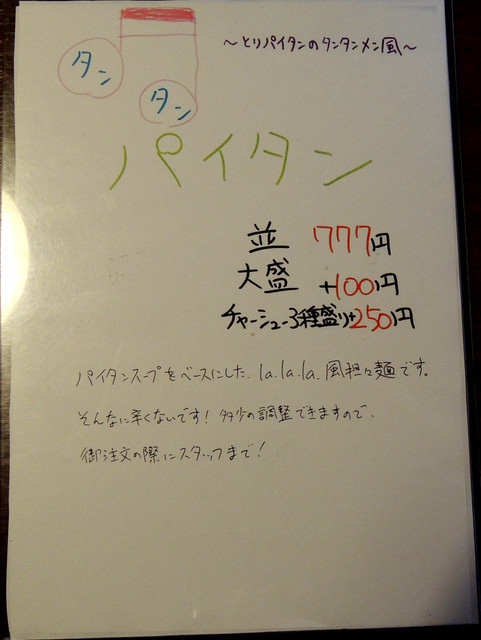 ～とりパイタンのタンタンメン風～
タン
タン
パイタン
並 777円
大盛 +100円
チャーシュー3種盛り+250円
パイタンスープをベースにした、la.la.la.風担々麺です。
そんなに辛くないです！多少の調整できますので、
御注文の際にスタッフまで！